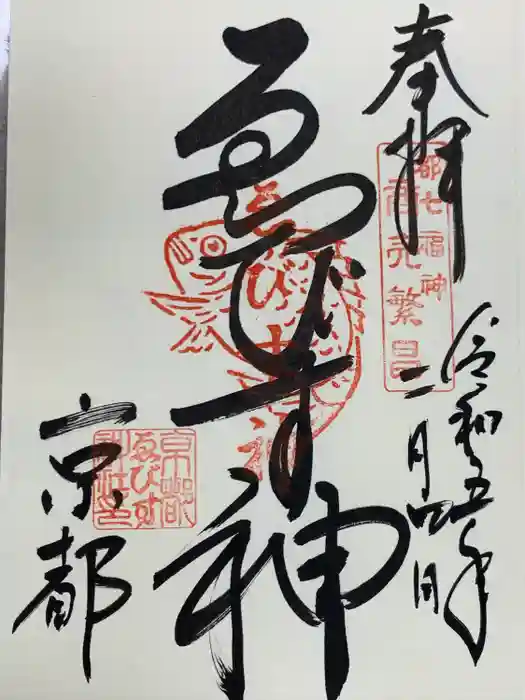 奉拝
都七福神
商売繁昌
令和五年
二月四日
ゑびす神
ゑびす神
京都
京都
ゑびす